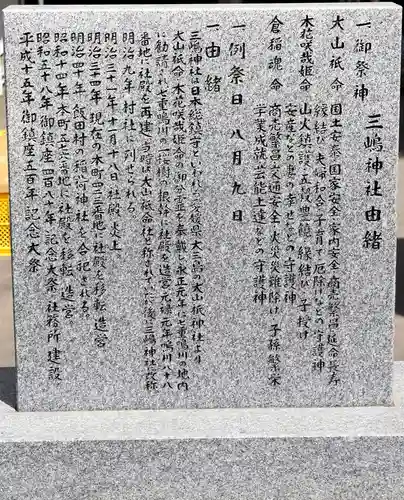 三嶋神社由緒
一、御祭神
大山祇命 国土安泰 国家安全 家内安全 商売繁昌 延命長寿
縁結び 夫婦和合 子育て 厄除けなどの守護神
木花咲哉姫命 山火鎮護 五穀豊饒 縁結び 子授け
安産などの妻の幸せなどの守護神
倉稲魂命 商売繁昌 交通安全 火災災難除け 子孫繁栄
学業成就 芸能上達などの守護神
一、例祭日 八月九日
一、由緒
三嶋神社は日本総鎮守といわれる愛媛県大三島の大山祇神社より
大山祇命 木花咲哉姫命の御分霊を奉載し永正元年に七重鳴川の地内
に勧請され七重鳴川の三桜樹の根許に社殿を造営 元禄元年鳴川八十八
番地に社殿を再建 当時は大山祇命社と称されていた 後三嶋神社と改称
明治九年 村社に列せられる
明治三十一年十一月十八日 社殿 炎上
明治三十四年 現在の本町四三番地に社殿を移転 造営
明治四十年 飯田村の稲荷神社を合祀される
昭和十四年 本町五三六番地に社殿を移転 造営
昭和五十八年 御鎮座四百八十年 記念大祭 社務所 建設
平成十五年 御鎮座五百年 記念大祭